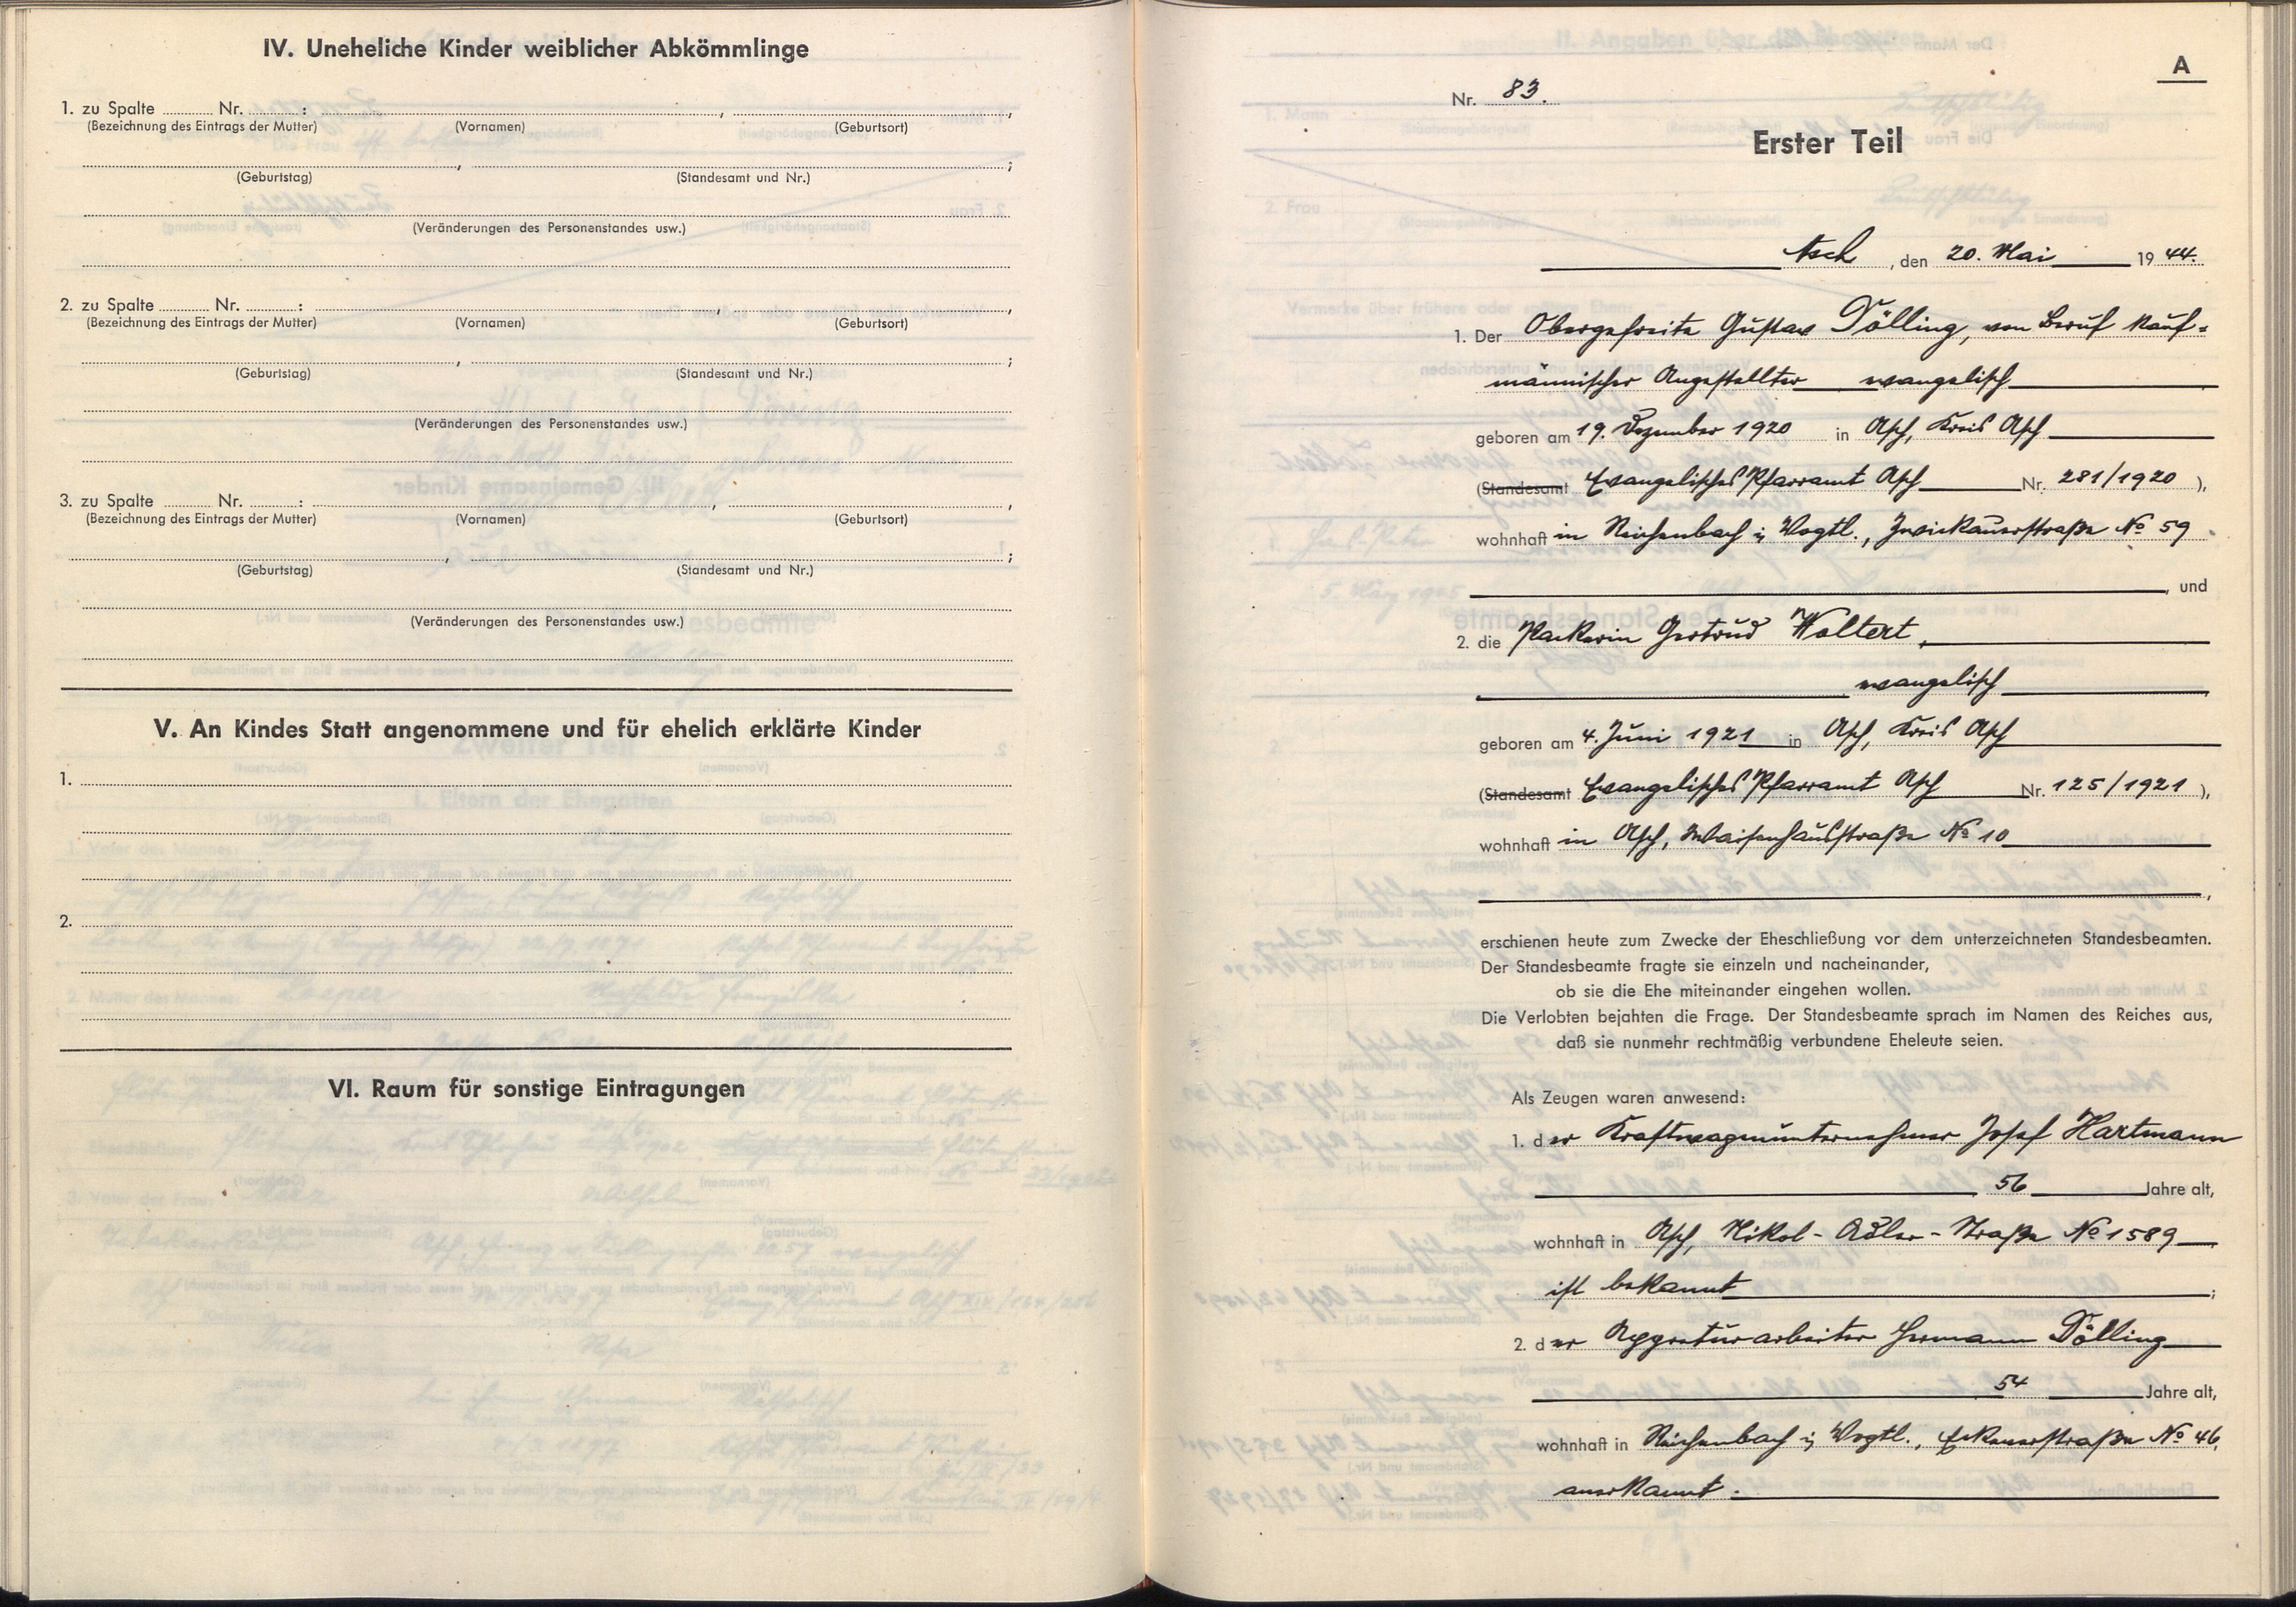 IV. Uneheliche Kinder weiblicher Abkömmlinge
1. zu Spalte ........ Nr. ........ : , ,
(Bezeichnung des Eintrags der Mutter) (Vornamen) (Geburtsort)
, ;
(Geburtstag) (Standesamt und Nr.)
(Veränderungen des Personenstandes usw.)
2. zu Spalte ........ Nr. ........ : , ,
(Bezeichnung des Eintrags der Mutter) (Vornamen) (Geburtsort)
, ;
(Geburtstag) (Standesamt und Nr.)
(Veränderungen des Personenstandes usw.)
3. zu Spalte ........ Nr. ........ : , ,
(Bezeichnung des Eintrags der Mutter) (Vornamen) (Geburtsort)
, ;
(Geburtstag) (Standesamt und Nr.)
(Veränderungen des Personenstandes usw.)
V. An Kindes Statt angenommene und für ehelich erklärte Kinder
1.
2.
VI. Raum für sonstige Eintragungen
A
Nr. 83.
Erster Teil
Asch, den 20. Mai 1944.
1. Der Obergefreite Gustav Tölling, von Beruf kauf=
männischer Angestellter evangelisch
geboren am 19. Dezember 1920 in Asch, Kreis Asch
(Standesamt Evangelisches Pfarramt Asch Nr. 281/1920),
wohnhaft in Reichenbach i. Vogtl., Zwickauerstraße No 59
, und
2. die Packerin Gertrud Woltert,
evangelisch
geboren am 4. Juni 1921 in Asch, Kreis Asch
(Standesamt Evangelisches Pfarramt Asch Nr. 125/1921),
wohnhaft in Asch, Waisenhausstraße No 10
,
erschienen heute zum Zwecke der Eheschließung vor dem unterzeichneten Standesbeamten.
Der Standesbeamte fragte sie einzeln und nacheinander,
ob sie die Ehe miteinander eingehen wollen.
Die Verlobten bejahten die Frage. Der Standesbeamte sprach im Namen des Reiches aus,
daß sie nunmehr rechtmäßig verbundene Eheleute seien.
Als Zeugen waren anwesend:
1. der Kraftwagenunternehmer Josef Hartmann
56 Jahre alt,
wohnhaft in Asch, Nikol-Adler-Straße No 1589
ist bekannt ;
2. der Appreturarbeiter Hermann Tölling
54 Jahre alt,
wohnhaft in Reichenbach i. Vogtl., No 46,
anerkannt.